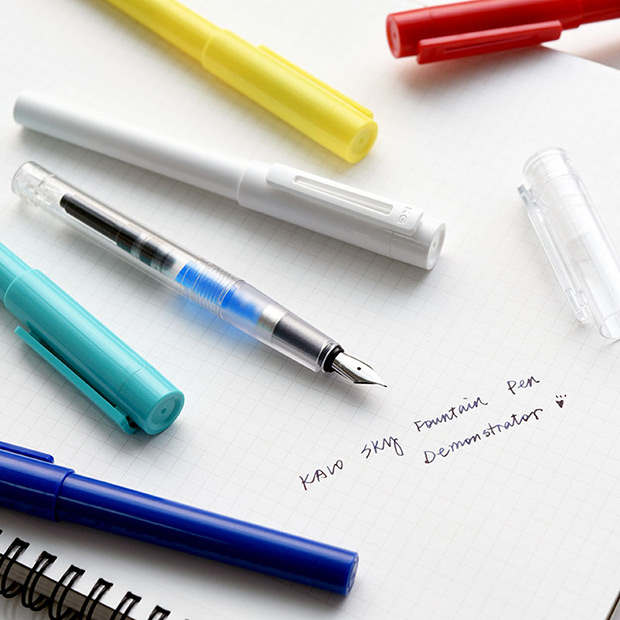 KAVO SKY Fountain Pen
Demonstrator